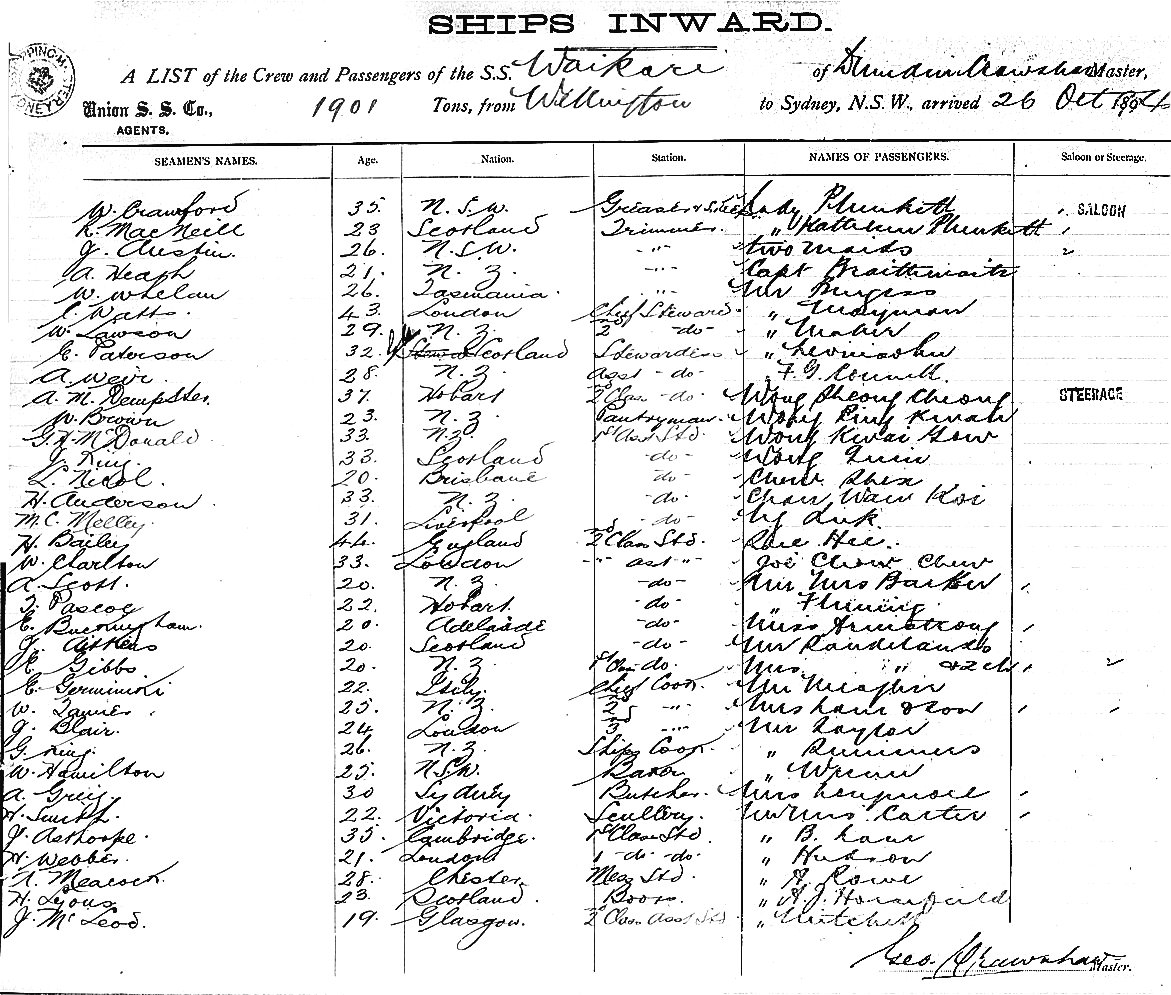 SHIPS INWARD.
A LIST of the Crew and Passengers of the S.S. Waikare of Dunedin Crawshaw Master,
Union S. S. Co., 1901 Tons, from Wellington to Sydney, N.S.W., arrived 26 Oct 1894
AGENTS,
SEAMEN'S NAMES. Age. Nation. Station. NAMES OF PASSENGERS. Saloon or Steerage.
W. Crawford 35. N. S. W. Greaser & Lady Plunkett SALOON
K. MacNeill 23 Scotland Trimmer. " Kathleen Plunkett
J. Austin. 26. N. S. W. -"- two maids
A. Heath 21. N. Z. -"- Capt Braithwaite
W. Whelan 26. Tasmania. -"- Mr Burgess
Watts 43. London Chief Steward. " Mayman
W. Lawson 29. N. Z. 2 -do- " Maher
E. Paterson 32. Scotland Stewardess " Levinsohn
A. Weir. 28. N. Z. Asst -do- " F. G.
A. M. Dempster. 37. Hobart 2 Class -do- Wong Cheong STEERAGE
W. Brown 23. N. Z. Pantryman. Wong Ping
G. H. McDonald 33. N. Z. 1st Asst Std. Wong Kwai Gow
J. King. 33. Scotland -do- Wong
L. Nicol. 20. Brisbane do- Chew
H. Anderson 33. N. Z. -do- Chan Wau Koi
M. C. Melley. 31. Liverpool -do-
H. Bailey 44. England 2 Class Std. Hee.
W. Clarlton 33. London -"- asst "- Joe Chow Chew
A. Scott. 20. N. Z. -do- Mr Mrs Barker
T. Pascoe 22. Hobart. -do- " Fleming
E. Buckingham. 20. Adelaide -do- Miss Armstrong
J. Aitkens 20. Scotland -do- Mr
E. Gibbs. 20. N. Z. 1st Class -do. Mrs " & 2 ch.
E. Germinioni 22. Italy. Chief Cook. Mr
W. 25. N. Z. 2 -"- Mrs & son
J. Blair. 24 London 3 -"- Mr Taylor
G. King. 26. N. Z. Ships Cook. " Summers
W. Hamilton 25. N.S.W. Baker " Wrenn
A. Greig. 30 Sydney Butcher. Mrs
H. Smith. 22. Victoria. Scullery. Mr Mrs Carter
J. Asthorpe. 35. Cambridge. 1st Class Std " B.
H. Webber. 21. London 1 -do- do- " Hudson
N. Meacock. 28. Chester. Mess Std. " A. Rowe
H. Lyons 23. Scotland Boots. " A. J.
J. McLeod. 19. Glasgow. 2 Class Asst Std " Mitchell
Geo. Crawshaw Master.